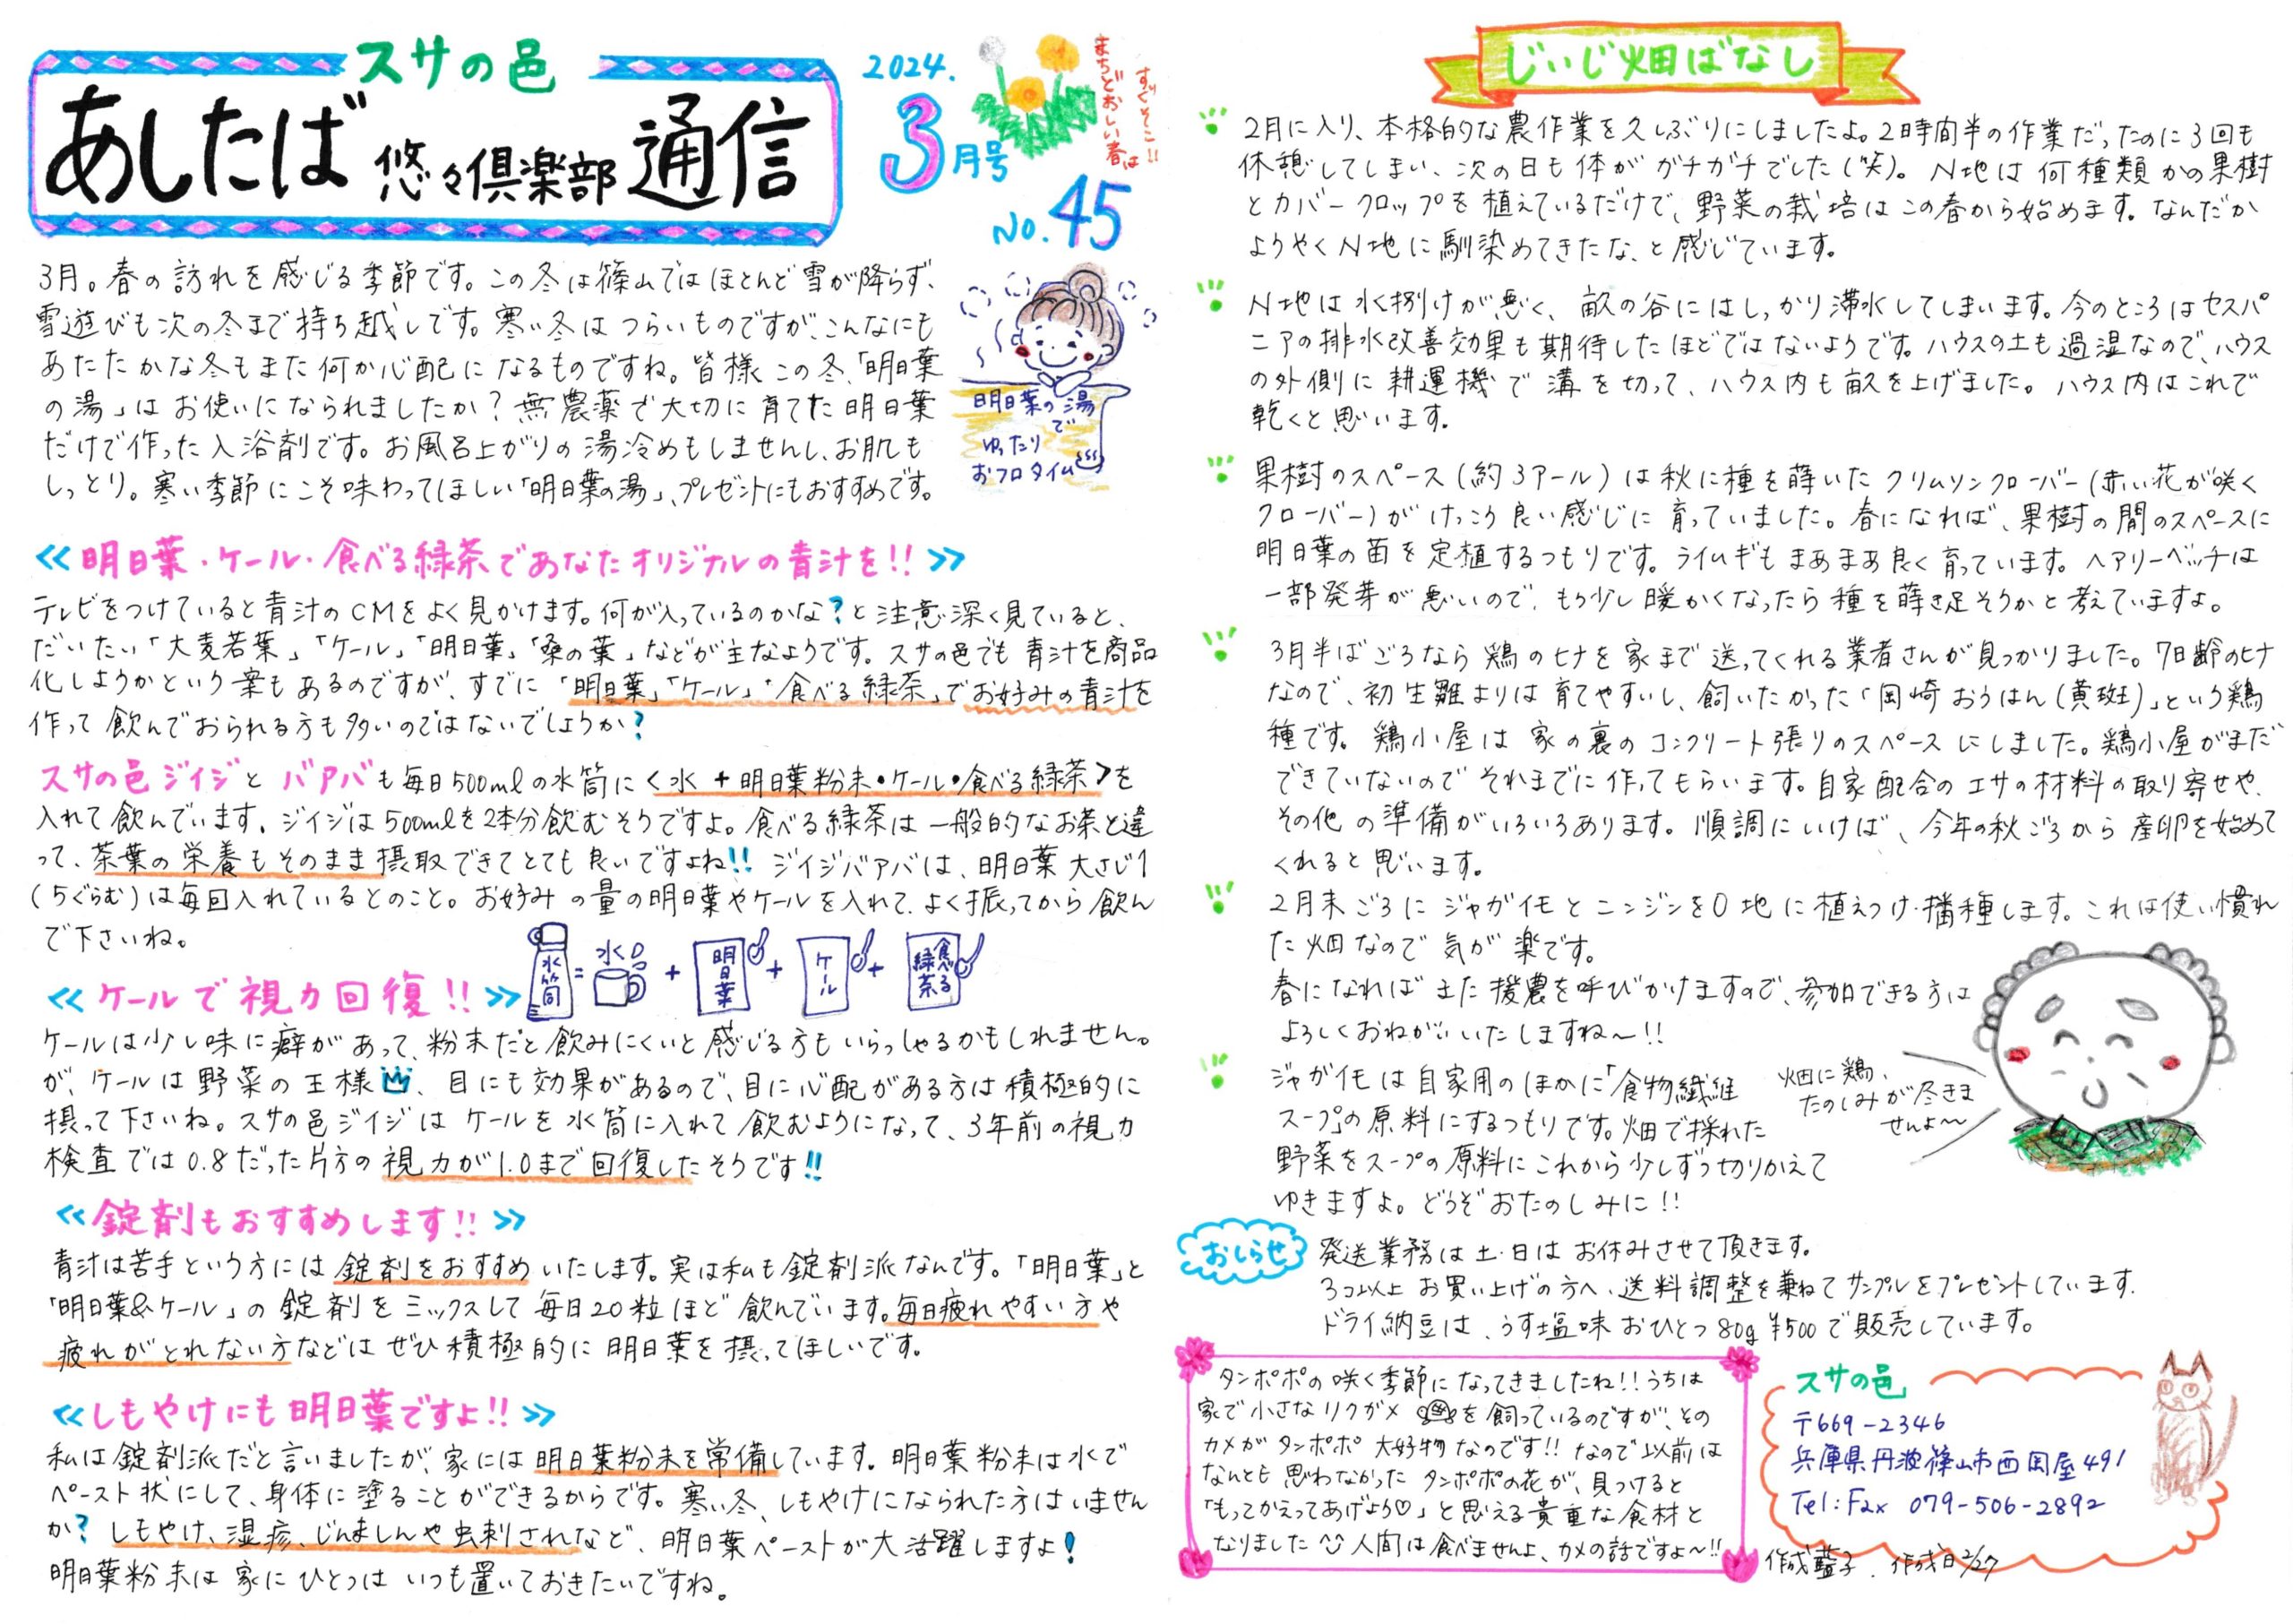 スサの邑
あしたば 悠々倶楽部 通信
2024.
3月号
No.45
まちどおしい春は
すぐそこ!!
3月。春の訪れを感じる季節です。この冬は篠山ではほとんど雪が降らず、
雪遊びも次の冬まで持ち越しです。寒い冬はつらいものですが、こんなにも
あたたかな冬もまた何か心配になるものですね。皆様この冬、「明日葉
の湯」はお使いになられましたか?無農薬で大切に育てた明日葉
だけで作った入浴剤です。お風呂上がりの湯冷めもしませんし、お肌も
しっとり。寒い季節にこそ味わってほしい「明日葉の湯」、プレゼントにもおすすめです。
明日葉の湯
で
ゆったり
おフロタイム
≪明日葉・ケール・食べる緑茶であなたオリジナルの青汁を!!≫
テレビをつけていると青汁のCMをよく見かけます。何が入っているのかな?と注意深く見ていると、
だいたい「大麦若葉」「ケール」「明日葉」「桑の葉」などが主なようです。スサの邑でも青汁を商品
化しようかという案もあるのですが、すでに「明日葉」「ケール」「食べる緑茶」でお好みの青汁を
作って飲んでおられる方も多いのではないでしょうか?
スサの邑ジイジとバアバも毎日500mlの水筒に<水+明日葉粉末・ケール・食べる緑茶>を
入れて飲んでいます。ジイジは500mlを2本分飲むそうですよ。食べる緑茶は一般的なお茶と違
って、茶葉の栄養もそのまま摂取できてとても良いですよね!!ジイジバアバは、明日葉大さじ1
(5ぐらむ)は毎回入れているとのこと。お好みの量の明日葉やケールを入れて、よく振ってから飲ん
で下さいね。
水筒=水+明日葉+ケール+食べる緑茶
≪ケールで視力回復!!≫
ケールは少し味に癖があって、粉末だと飲みにくいと感じる方もいらっしゃるかもしれません。
が、ケールは野菜の王様、目にも効果があるので、目に心配がある方は積極的に
摂って下さいね。スサの邑ジイジはケールを水筒に入れて飲むようになって、3年前の視力
検査では0.8だった片方の視力が1.0まで回復したそうです!!
≪錠剤もおすすめします!!≫
青汁は苦手という方には錠剤をおすすめいたします。実は私も錠剤派なんです。「明日葉」と
「明日葉&ケール」の錠剤をミックスして毎日20粒ほど飲んでいます。毎日疲れやすい方や
疲れがとれない方などはぜひ積極的に明日葉を摂ってほしいです。
≪しもやけにも明日葉ですよ!!≫
私は錠剤派だと言いましたが、家には明日葉粉末を常備しています。明日葉粉末は水で
ペースト状にして、身体に塗ることができるからです。寒い冬、しもやけになられた方はいません
か?しもやけ、湿疹、じんましんや虫刺されなど、明日葉ペーストが大活躍しますよ!
明日葉粉末は家にひとつはいつも置いておきたいですね。
じいじ畑ばなし
2月に入り、本格的な農作業を久しぶりにしましたよ。2時間半の作業だったのに3回も
休憩してしまい、次の日も体がガチガチでした(笑)。N地は何種類かの果樹
とカバークロップを植えているだけで、野菜の栽培はこの春から始めます。なんだか
ようやくN地に馴染めてきたな、と感じています。
N地は水捌けが悪く、畝の谷にはしっかり滞水してしまいます。今のところはセスパ
ニアの排水改善効果も期待したほどではないようです。ハウスの土も過湿なので、ハウス
の外側に耕運機で溝を切って、ハウス内も畝を上げました。ハウス内はこれで
乾くと思います。
果樹のスペース(約3アール)は秋に種を蒔いたクリムソンクローバー(赤い花が咲く
クローバー)がけっこう良い感じに育っていました。春になれば、果樹の間のスペースに
明日葉の苗を定植するつもりです。ライムギもまあまあ良く育っています。ヘアリーベッチは
一部発芽が悪いので、もう少し暖かくなったら種を蒔き足そうかと考えていますよ。
3月半ばごろなら鶏のヒナを家まで送ってくれる業者さんが見つかりました。7日齢のヒナ
なので、初生雛よりは育てやすいし、飼いたかった「岡崎おうはん(黄斑)」という鶏
種です。鶏小屋は家の裏のコンクリート張りのスペースにしました。鶏小屋がまだ
できていないのでそれまでに作ってもらいます。自家配合のエサの材料の取り寄せや、
その他の準備がいろいろあります。順調にいけば、今年の秋ごろから産卵を始めて
くれると思います。
2月末ごろにジャガイモとニンジンをO地に植えつけ・播種します。これは使い慣れ
た畑なので気が楽です。
春になればまた援農を呼びかけますので、参加できる方は
よろしくおねがいいたしますね〜!!
ジャガイモは自家用のほかに「食物繊維
スープ」の原料にするつもりです。畑で採れた
野菜をスープの原料にこれから少しずつ切りかえて
ゆきますよ。どうぞおたのしみに!!
畑に鶏、
たのしみが尽きま
せんよ〜
おしらせ
発送業務は土・日はお休みさせて頂きます。
3コ以上お買い上げの方へ、送料調整を兼ねてサンプルをプレゼントしています。
ドライ納豆は、うす塩味おひとつ80g ¥500で販売しています。
タンポポの咲く季節になってきましたね!!うちは
家で小さなリクガメを飼っているのですが、その
カメがタンポポ大好物なのです!!なので以前は
なんとも思わなかったタンポポの花が、見つけると
「もってかえってあげよう♡」と思える貴重な食材と
なりました 人間は食べませんよ、カメの話ですよ〜!!
スサの邑
〒669-2346
兵庫県丹波篠山市西岡屋491
Tel:Fax 079-506-2892
作成藍子. 作成日2/27